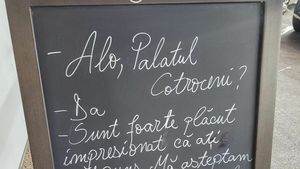 - Alo, Palatul
Cotroceni?
- Da
- Sunt foarte plăcut
impresionat că ați
Mă așteptam